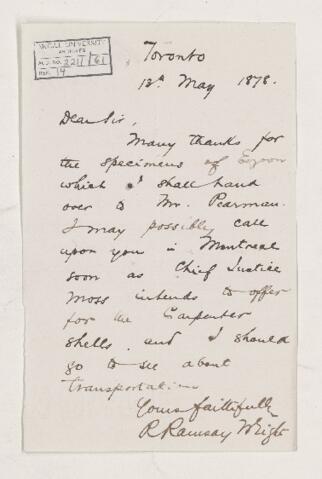 McGILL UNIVERSITY
ARCHIVES
ACC. NO. 2211/61
REF. 14
Toronto
12th May 1878.
Dear Sir,
Many thanks for
the specimens of Eozoon
which I shall hand
over to Mr. Pearman.
I may possibly call
upon you in Montreal
soon as Chief Justice
Moss intends to offer
for the Carpenter
shells and I should
go to see about
transportation
Yours faithfully
R. Ramsay Wright